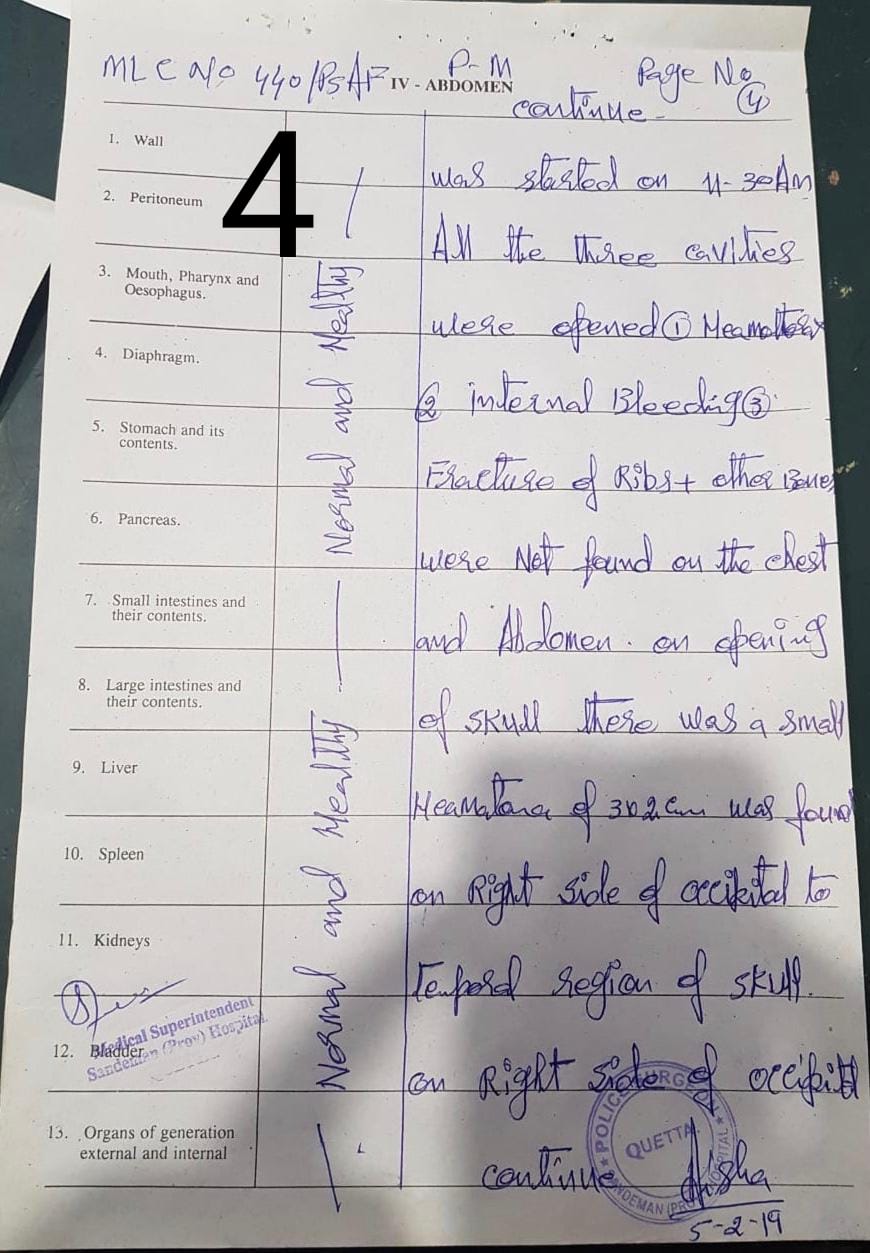 MLC No 440/PSAF P-M Page No
4
IV - ABDOMEN
continue -
4
1. Wall
2. Peritoneum
3. Mouth, Pharynx and
Oesophagus.
4. Diaphragm.
5. Stomach and its
contents.
6. Pancreas.
7. Small intestines and
their contents.
8. Large intestines and
their contents.
9. Liver
10. Spleen
11. Kidneys
12. Bladder
13. Organs of generation
external and internal
Normal and Healthy
Normal and Healthy
was started on 11-30AM
All the three cavities
were opened ①
② internal Bleeding ③
Fracture of Ribs + other Bones
were Not found on the chest
and Abdomen. on opening
of skull there was a small
Heamatoma of 3x2cm was found
on Right side of occipital to
Temporal region of skull.
on Right side of
continue Aisha
5-2-19
Medical Superintendent
Sandeman (Prov) Hospital
POLICE SURGEON
QUETTA
SANDEMAN (PROV) HOSPITAL